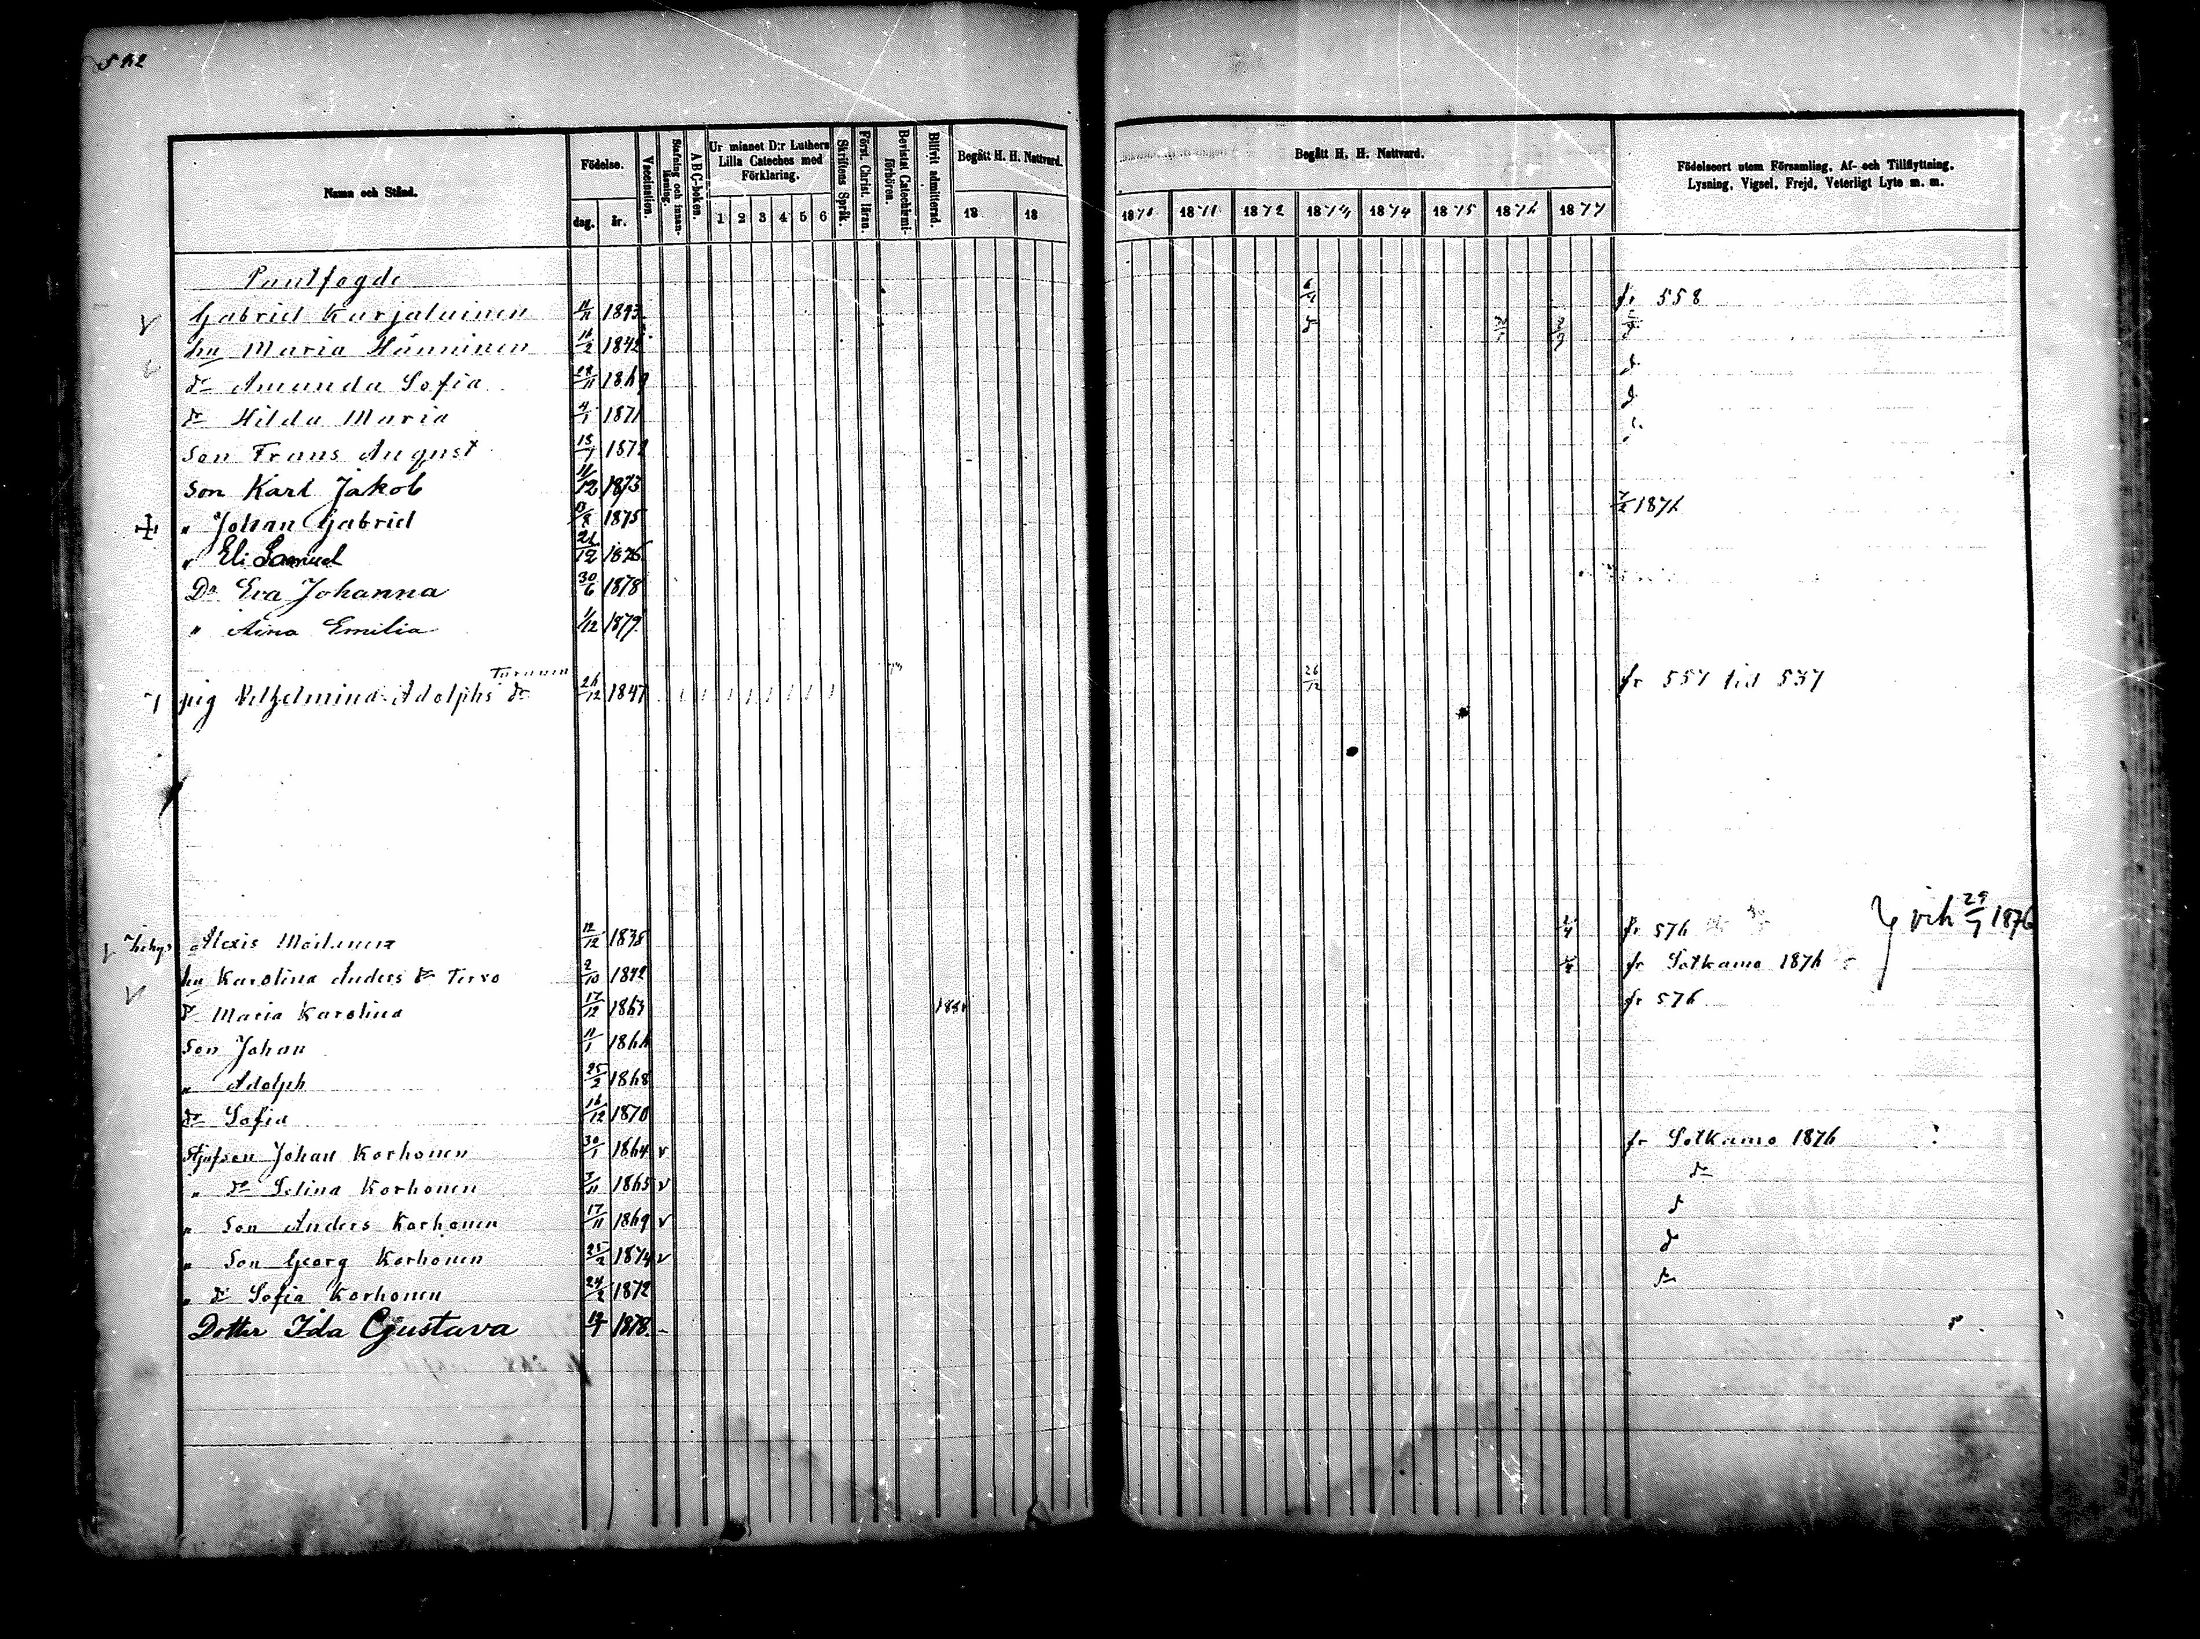 Namn och Stånd. Födelse. dag. år. Vaccination. Stafning och innanläsning. A B C-boken. Ur minnet D:r Luthers Lilla Cateches med Förklaring. 1 2 3 4 5 6 Skriftens Språk. Först. Christ. läran. Bevistat Catechismiförhören. Blifvit admitterad. Begått H. H. Nattvard. 18 18
Begått H. H. Nattvard. 1870 1871 1872 1873 1874 1875 1876 1877 Födelseort utom Församling, Af- och Tillflyttning, Lysning, Vigsel, Frejd, Veterligt Lyte m. m.
Gabriel Karjalainen 1843 fr 558
hu Maria Hänninen 1842
dr Amanda Sofia 28/11 1869 d
dr Hilda Maria 4/1 1871 d
Son Frans August 1872
Son Karl Jakob 11/12 1873
" Johan Gabriel 1875 1876
" Eli Samuel 1876
Dr Eva Johanna 30/6 1878
" Aina Emilia 1/12 1879
Turunen
pig Vilhelmina Adolphs dr 26/12 1847 26/12 fr 557 tid 537
Alexis Moilanen 12/12 1838 fr 576 vih 29/7 1876
hu Karolina Anders dr Tervo 2/10 1842 fr Sotkamo 1876
d Maria Karolina 17/12 1863 fr 576
Son Johan 11/1 1866
" Adolph 25/2 1868
dr Sofia 16/12 1870
Stjufson Johan Korhonen 30/1 1864 v fr Sotkamo 1876
" dr Selina Korhonen 1865 v dr
" Son Anders Korhonen 17/11 1869 v d
" Son Georg Korhonen 25/2 1874 v d
" dr Sofia Korhonen 1872 dr
Dotter Ida Gustava 1878